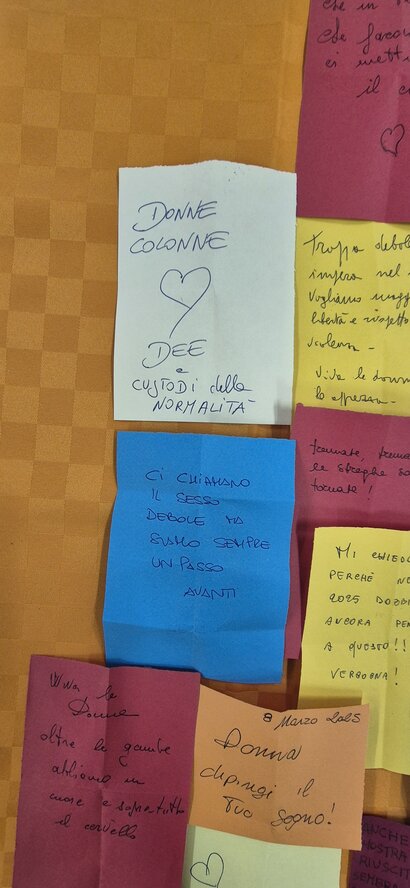 che in
che facon
ci mett
il c
DONNE
COLONNE
DEE
e
CUSTODI della
NORMALITÀ
Troppa debol
impera nel
Vogliamo magg
libertà e rispetto
violenza -
Viva le donn
lo spezza -
CI CHIAMANO
IL SESSO
DEBOLE MA
SIAMO SEMPRE
UN PASSO
AVANTI
tremate, trema
le streghe so
tornate !
MI CHIEDO
PERCHÈ NE
2025 DOBB
ANCORA PEN
A QUESTO!!
VERGOGNA!
Viva le
Donne
oltre le gambe
abbiamo un
cuore e sopratutto
il cervello
8 Marzo 2025
Donna
dipingi il
Tuo sogno!
ANCHE
NOSTRA
RIUSCIT
SEMPR